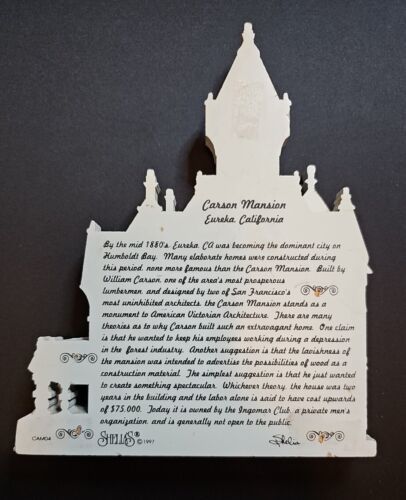 Carson Mansion
Eureka, California
By the mid 1880's, Eureka, CA was becoming the dominant city on
Humboldt Bay. Many elaborate homes were constructed during
this period, none more famous than the Carson Mansion. Built by
William Carson, one of the area's most prosperous
lumbermen, and designed by two of San Francisco's
most uninhibited architects, the Carson Mansion stands as a
monument to American Victorian Architecture. There are many
theories as to why Carson built such an extravagant home. One claim
is that he wanted to keep his employees working during a depression
in the forest industry. Another suggestion is that the lavishness of
the mansion was intended to advertise the possibilities of wood as a
construction material. The simplest suggestion is that he just wanted
to create something spectacular. Whichever theory, the house was two
years in the building and the labor alone is said to have cost upwards
of $75,000. Today it is owned by the Ingomar Club, a private men's
organization, and is generally not open to the public.
CAM04 SHELIA'S ® ©1997 Shelia